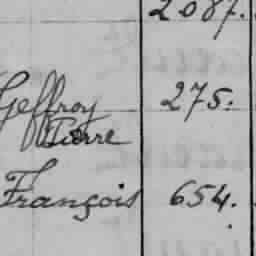 2087.
Geffroy 275.
Pierre
François 654.